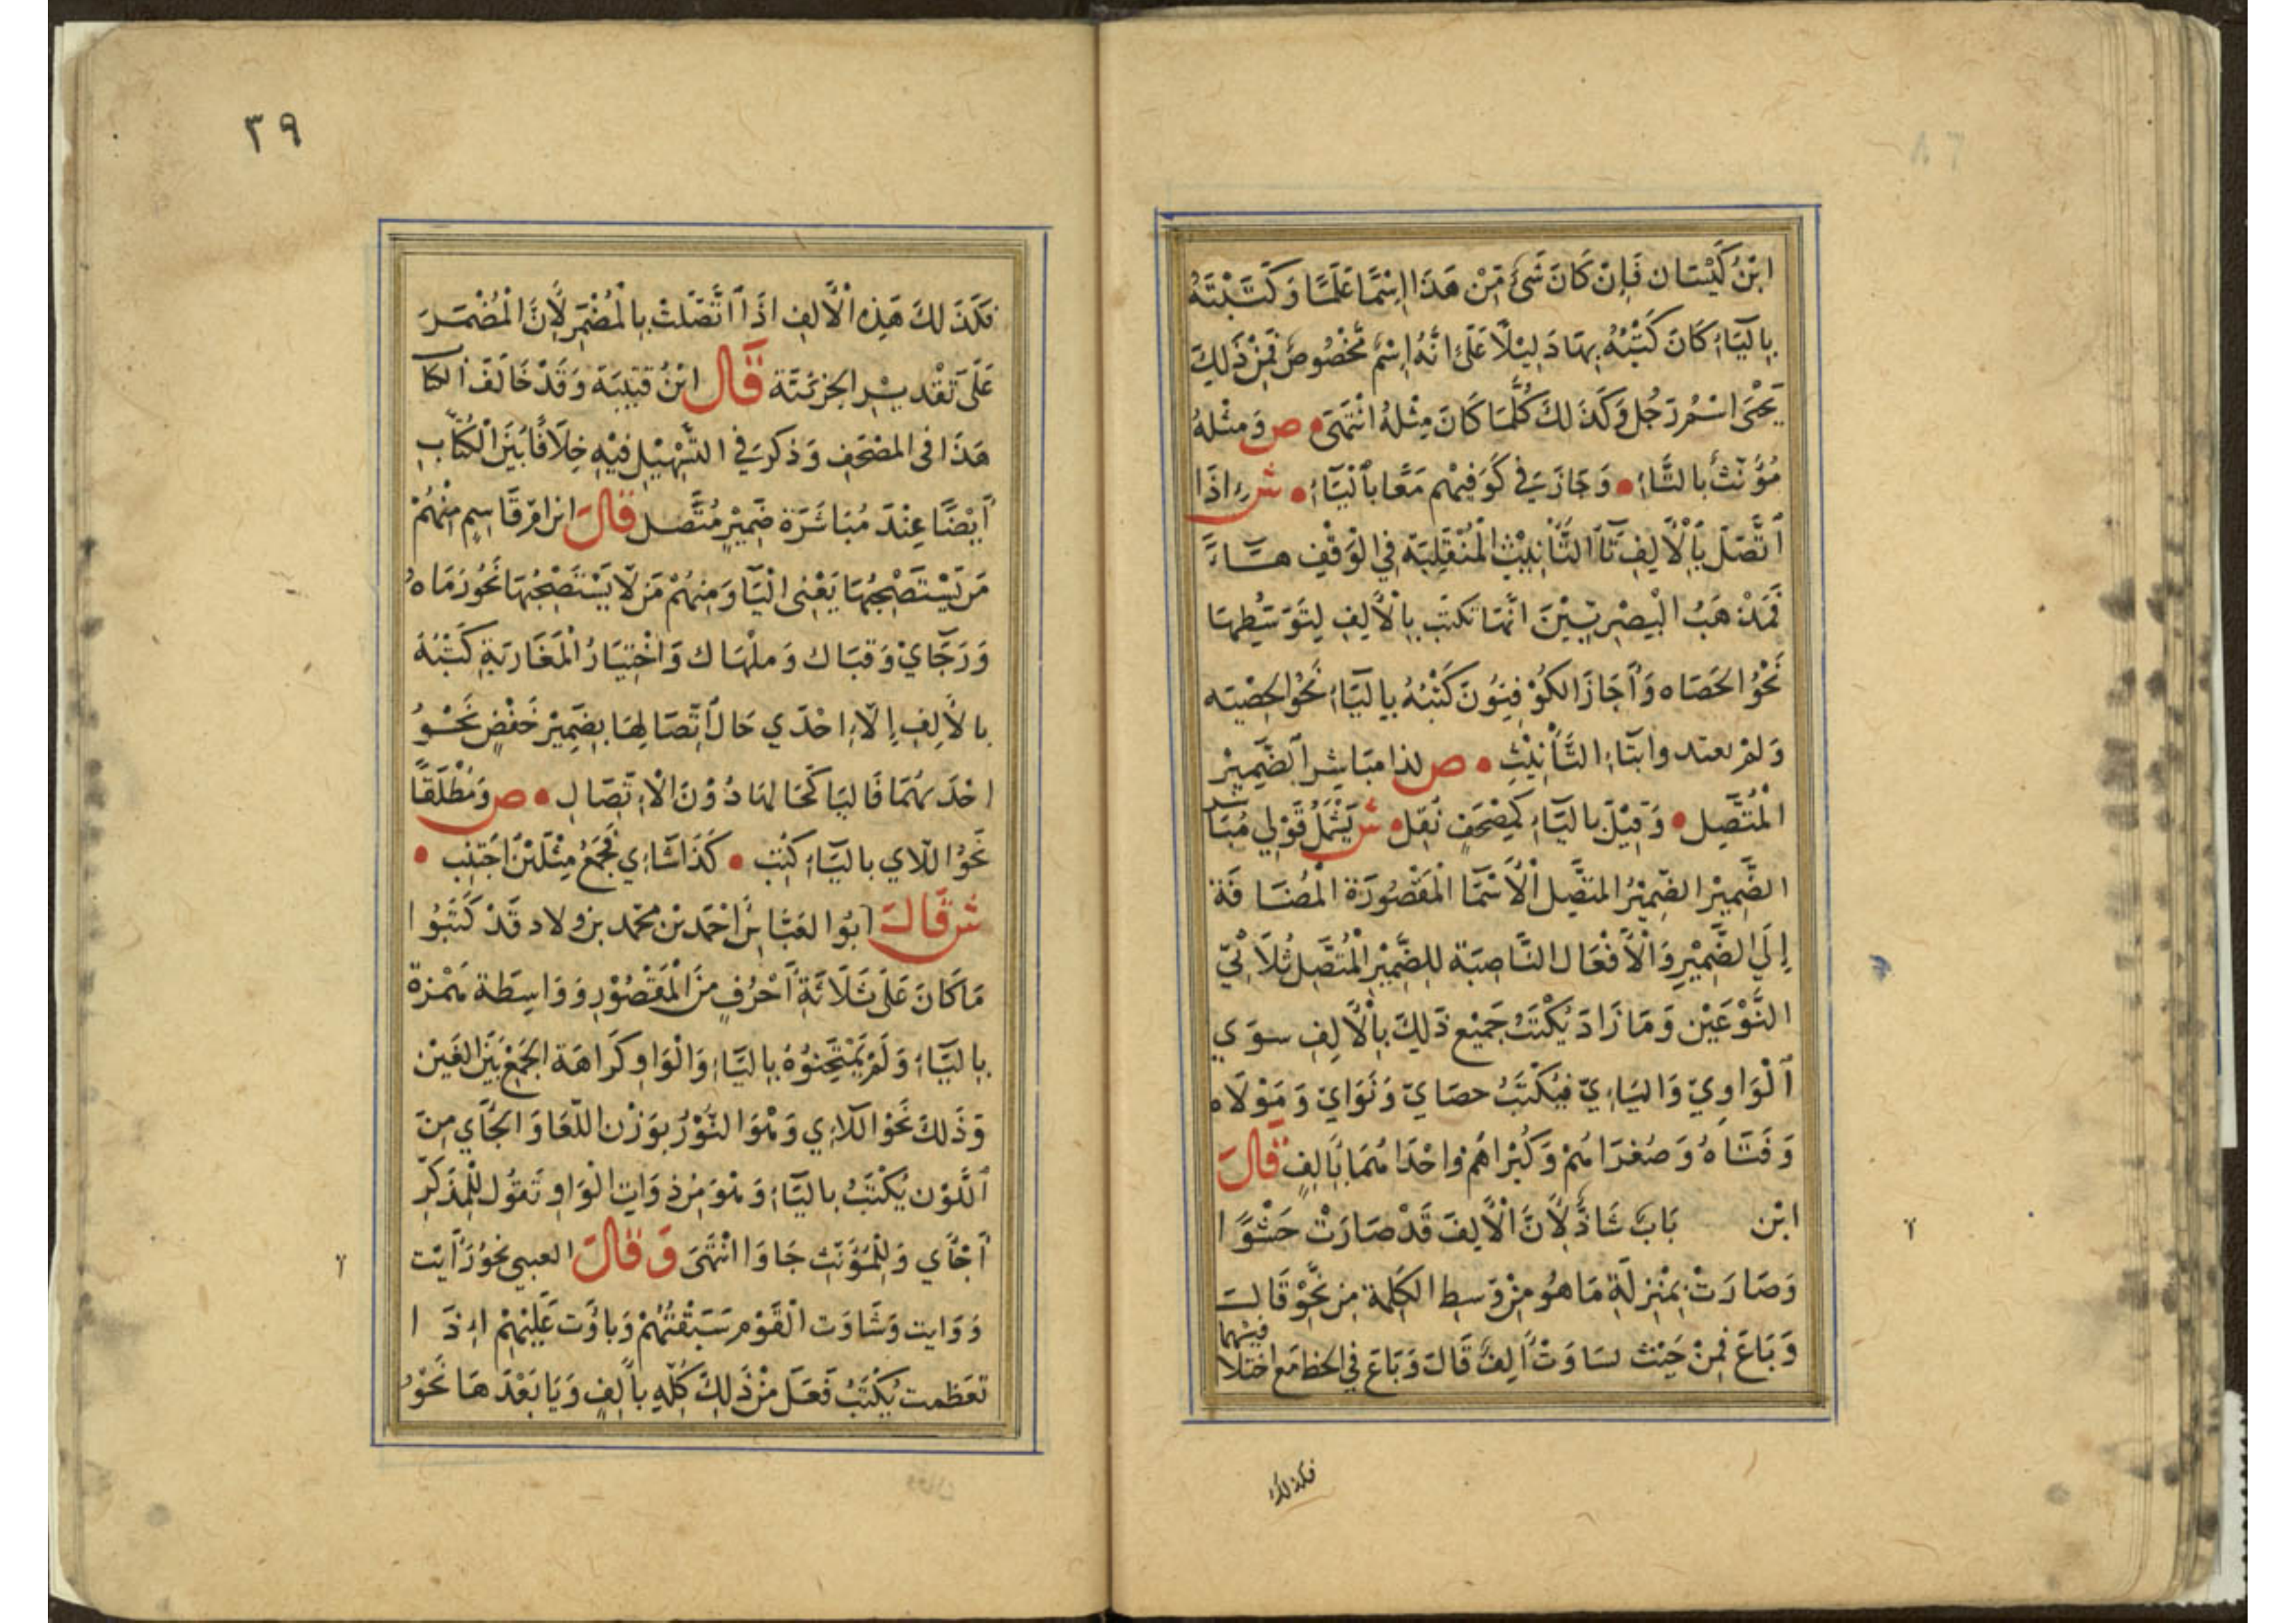 ابْنُ كَيْسَان فَإِنْ كَانَ شَىْءٌ مِّنْ هَذَا اِسْمًا عَلَمًا وَكَتَبْتَهُ
بِاليَاءِ كَانَ كَتْبُهُ بِهَا دَلِيْلًا عَلَى انَّهُ اِسْمٌ مَخْصُوصٌ فَمِنْ ذَلِكَ
يَحْيَى اسْمُ رَجُل وَكَذَلكَ كُلَّمَا كَانَ مِثْلهُ انْتَهَى • ص وَمثْلهُ
مُؤَنَّثٌ بالتَّاءِ • وَجَازَ فِي كُوَفِيْهم مَعًا بِاَلْيَاءِ • ش اذَا
اتَّصَلَ بِاَلْأَلِفِ تَاَ التَّأْنِيْثِ الْمُنْقَلِبَة فِي الوَقْفِ هَاءً
فَمَذْهَبُ الْبَصْرِيِّيْنَ انَّهَا تكتَب بِالْأَلِفِ لِتَوَسُّطِهَا
نَحْوُ الحَصَاه وَأَجَازَ الكُوْفِيُوُنَ كَتْبْهُ بِاليَاءِ نَحْوُ الحصْيَه
وَلَمْ يعتد وابتَاءِ التَّأْنِيْثِ • ص لذا مبَاشِرَ الضَّمِيْرِ
الْمُتَّصِل • وَقِيْلَ باليَاءِ كَمِصْحَفٍ نُقِل • ش يَشْمَلُ قَوْلِي مُبَاشر
الضَّمِيْر الضَّمِيْرُ المتصِّل الْأَسْمَا الْمَقْصُوْرَة الْمُضَافَة
إِلَي الضَّمِيْرِ وَالْأَفْعَال النَّاصِبَة للِضَّمِيْرِ الْمُتَّصِل ثُلَاثِيّ
النَّوْعَيْن وَمَا زَادَ يُكْتَبُ جَمِيْع ذَلِكَ بِالْأَلِفِ سوَي
اَلْوَاوِيّ وَاليَاءِيّ فيُكْتَبُ حصَايَ وَنَوَايَ وَمَوْلَاه
وَفَتَاهُ وَصُغرَاهُمْ وَكُبْرَاهُم وَاحْدَاهُمَا بِاَلِفٍ قَالَ
ابْن بَابَ شَاذَّ لِأَنَّ الْأَلِفَ قَدْ صَارَتْ حَشْوًا
وَصَارَتْ بِمْنِزلَةِ مَا هُو مِنْ وَسِطِ الكَلِمة مِن نَحْوِ قَالَ
وَبَاعَ فَمِنْ حَيْث تساوَتْ اَلِفُ قَالَ وَبَاعَ فِي الخط مَع اخْتلا
فيهما
فكذلك
٣٩
فكَذَلكَ هَذِه الْأَلفِ اذَا اتَّصَلَتْ بِالْمُضْمَرِ لِأَنَّ الْمُضْمَرَ
عَلَى تَقْديْرِ الجزئيَّة قَال ابْنُ قتيْبَة وَقَدْ خَالَفَ الكتا
هَذَا فى المصْحَفِ وَذكرَ فِي التَّسْهِيْل فيْهِ خِلَافًا بَيْنَ الْكُتَّابِ
أَيْضًا عِنْدَ مُبَاشَرَة ضَمِيْرٍ مُتَّصل قَالَ ابن امّ قَاسِم مِنْهُمْ
مَن يَسْتَصْحِبُهَا يَعْنِى الْيَا وَمِنهُمْ مَن لَا يَسْتَصْحِبُهَا نَحْوُ رَمَاهُ
وَرَحَايْ وَقبَاك وَملْهَاك وَاخْتِيَارُ الْمَغَارَبَةِ كَتْبُهُ
بالأَلِفِ إِلَّا احْدَي حَالَ اتِّصَالِهَا بِضَمِيْر خَفْضٍ نَحْوُ
احْدَيهُمَا فَاليَا كَحَالهَا دُوْنَ الْاتِّصَالِ • ص وَمُطْلَقًا
نَحْوُ اللّاي باليَاءِ كتب • كَذَا شَاءي فَجَمْعُ مِثْلَيْنِ اجْتنِب •
ش قَالَ ابُوا لعَبَّاس احْمَد بْن محْمّد بن ولاد قَدْ كَتَبُوا
مَا كَانَ عَلَى ثَلَاثَةِ أَحْرُفٍ مِنَ الْمَقْصُوْرِ وَوَاسِطَة همْزة
بِاليَاءِ وَلَمْ يَمْتَحِنُوْهُ بِاليَاءِ وَالْوَاوِ كَرَاهَة الجَمْع بَيْنَ الفَيْن
وَذَلكَ نَحْوُ اللّاءِي وَهْوَ الثَّوْرُ بوَزْن اللّعَا وَالجَأَي مِنَ
اَللّوْن يُكْتَبُ باليَاءِ وَهْوَ مِنْ ذوَاتِ الْوَاوِ تَقُول للْمُذَكر
أَجْأَي وَللْمُؤَنثِ جَاوَا انْتَهَى وَقَالَ العبي نحوُ رَأَيت
وَوَايت وَشَاوَت الْقَوْم سَبَقْتُهُمْ وَباوَت عَلَيْهِمْ اِذَا
تعَظمت يُكْتَبُ فَعَل مِنْ ذَلِكَ كُلّهِ بأَلِفٍ وَيَا بَعْدَهَا نَحْوُ